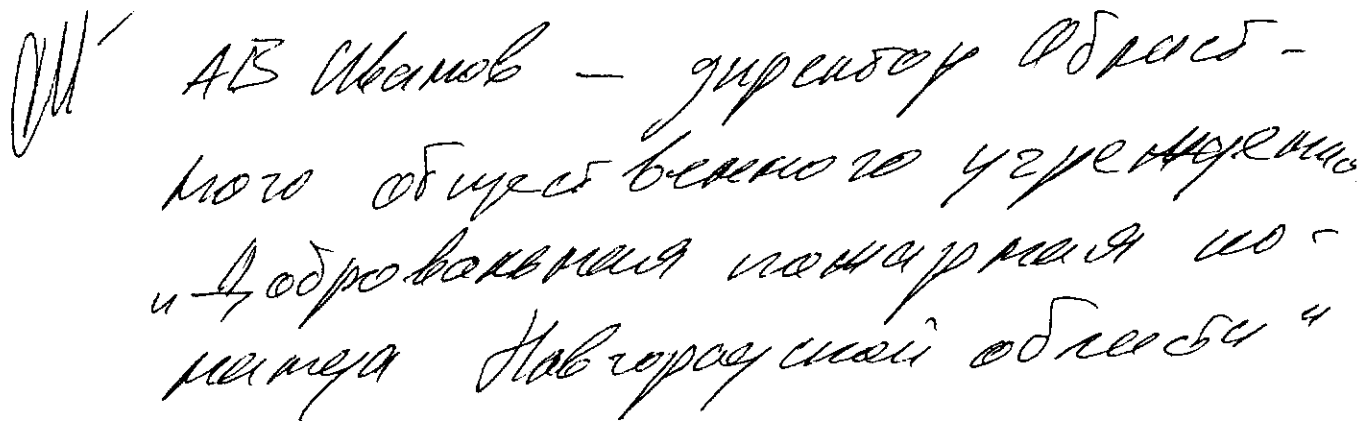 АВ Иванов — директор Област-
ного общественного учреждения
„Добровольная пожарная ко-
манда Новгородской области"